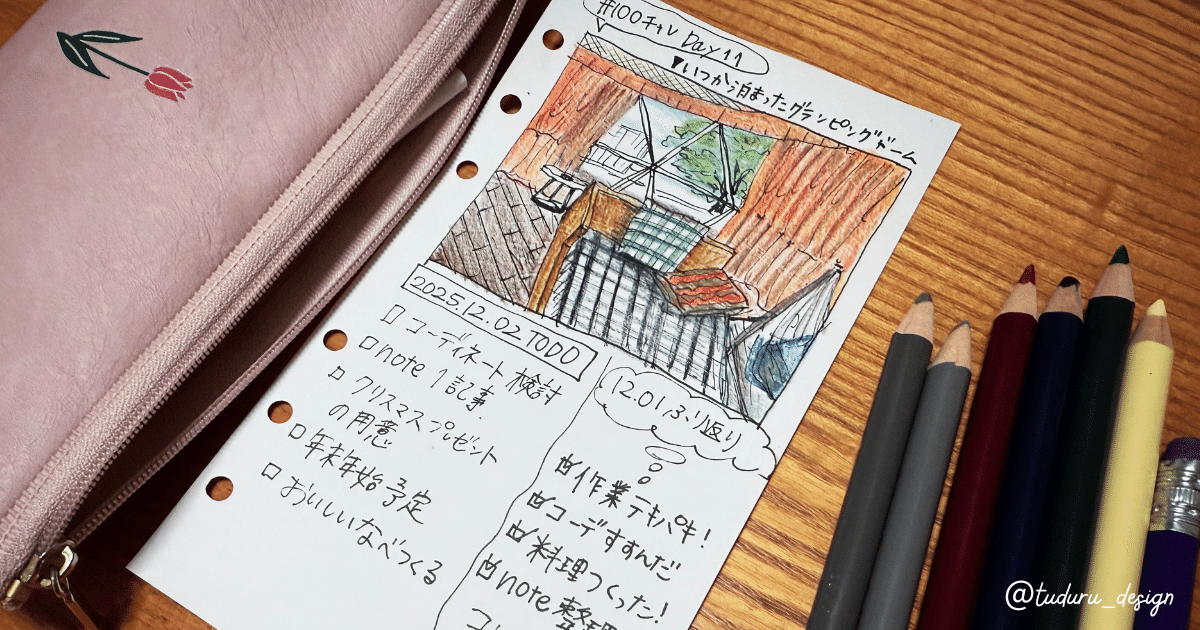 #100チャレ Day11
▼いつか泊まったグランピングドーム
2025.12.02 TODO
□ コーディネート検討
□ note 1記事
□ クリスマスプレゼント
の用意
□ 年末年始予定
□ おいしいなべつくる
12.01.ふり返り
☑作業テキパキ!
☑コーデすすんだ
☑料理つくった!
☑note整理
@tuduru_design